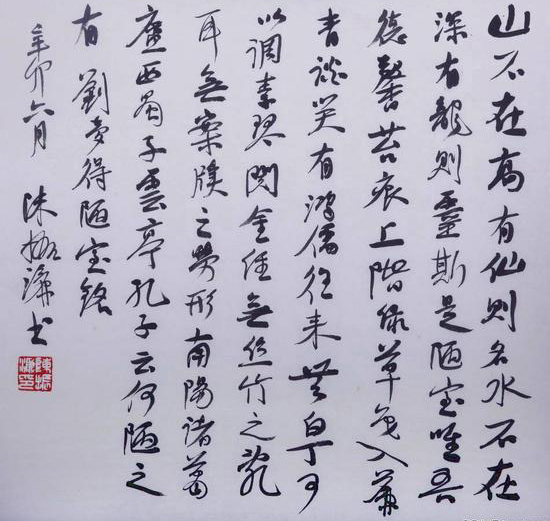 山不在高有仙则名水不在
深有龍则靈斯是陋室唯吾
德馨苔痕上階綠草色入簾
青談笑有鴻儒往来無白丁可
以调素琴閲金經無丝竹之亂
耳無案牘之勞形南陽諸葛
廬西蜀子雲亭孔子云何陋之
有 劉夢得陋室銘
辛卯六月 陈振濂书
陳振濂印